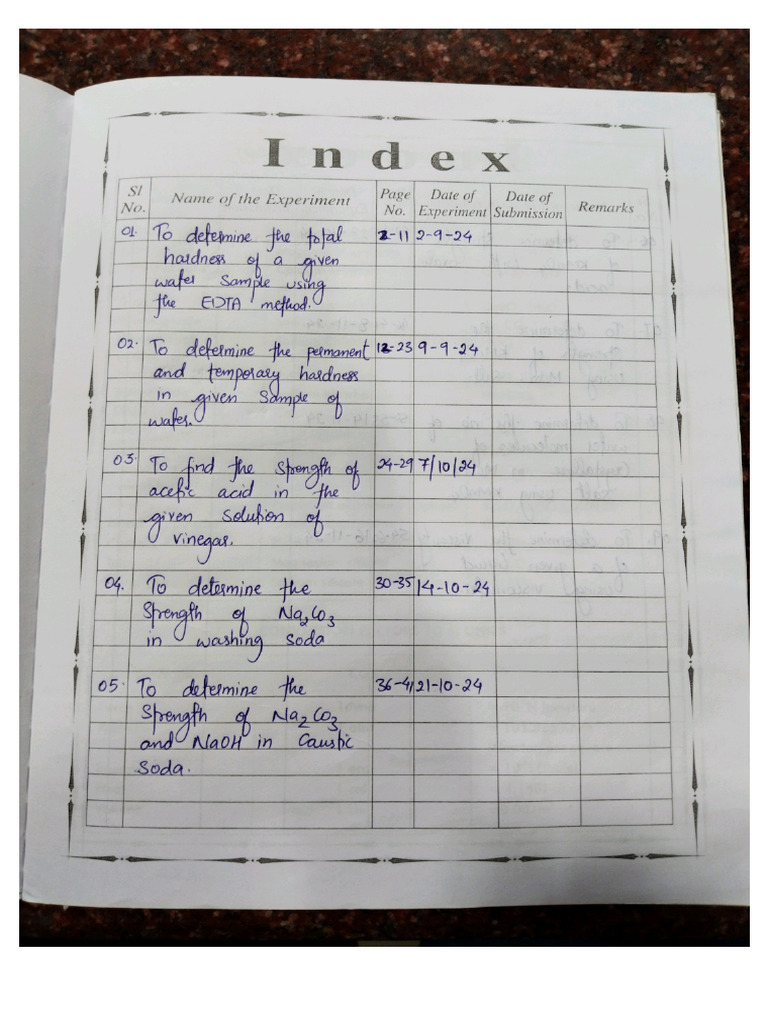 Index
Sl No. Name of the Experiment Page No. Date of Experiment Date of Submission Remarks
01. To determine the total 2-11 2-9-24
hardness of a given
water sample using
the EDTA method.
02. To determine the permanent 12-23 9-9-24
and temporary hardness
in given sample of
water.
03. To find the strength of 24-29 7/10/24
acetic acid in the
given solution of
vinegar.
04. To determine the 30-35 14-10-24
strength of Na2CO3
in washing soda
05. To determine the 36-41 21-10-24
strength of Na2CO3
and NaOH in Caustic
Soda.